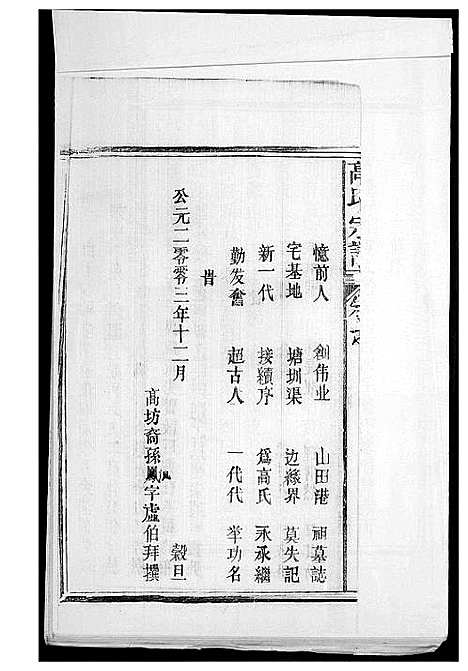 高氏宗譜
憶前人 創伟业 山田港 祖墓誌
宅基地 塘圳渠 边緣界 莫失記
新一代 接續序 爲高氏 永承繼
勤发奮 超古人 一代代 举功名
旹
公元二零零三年十二月 榖旦
高坊裔孫鳳字虚伯拜撰